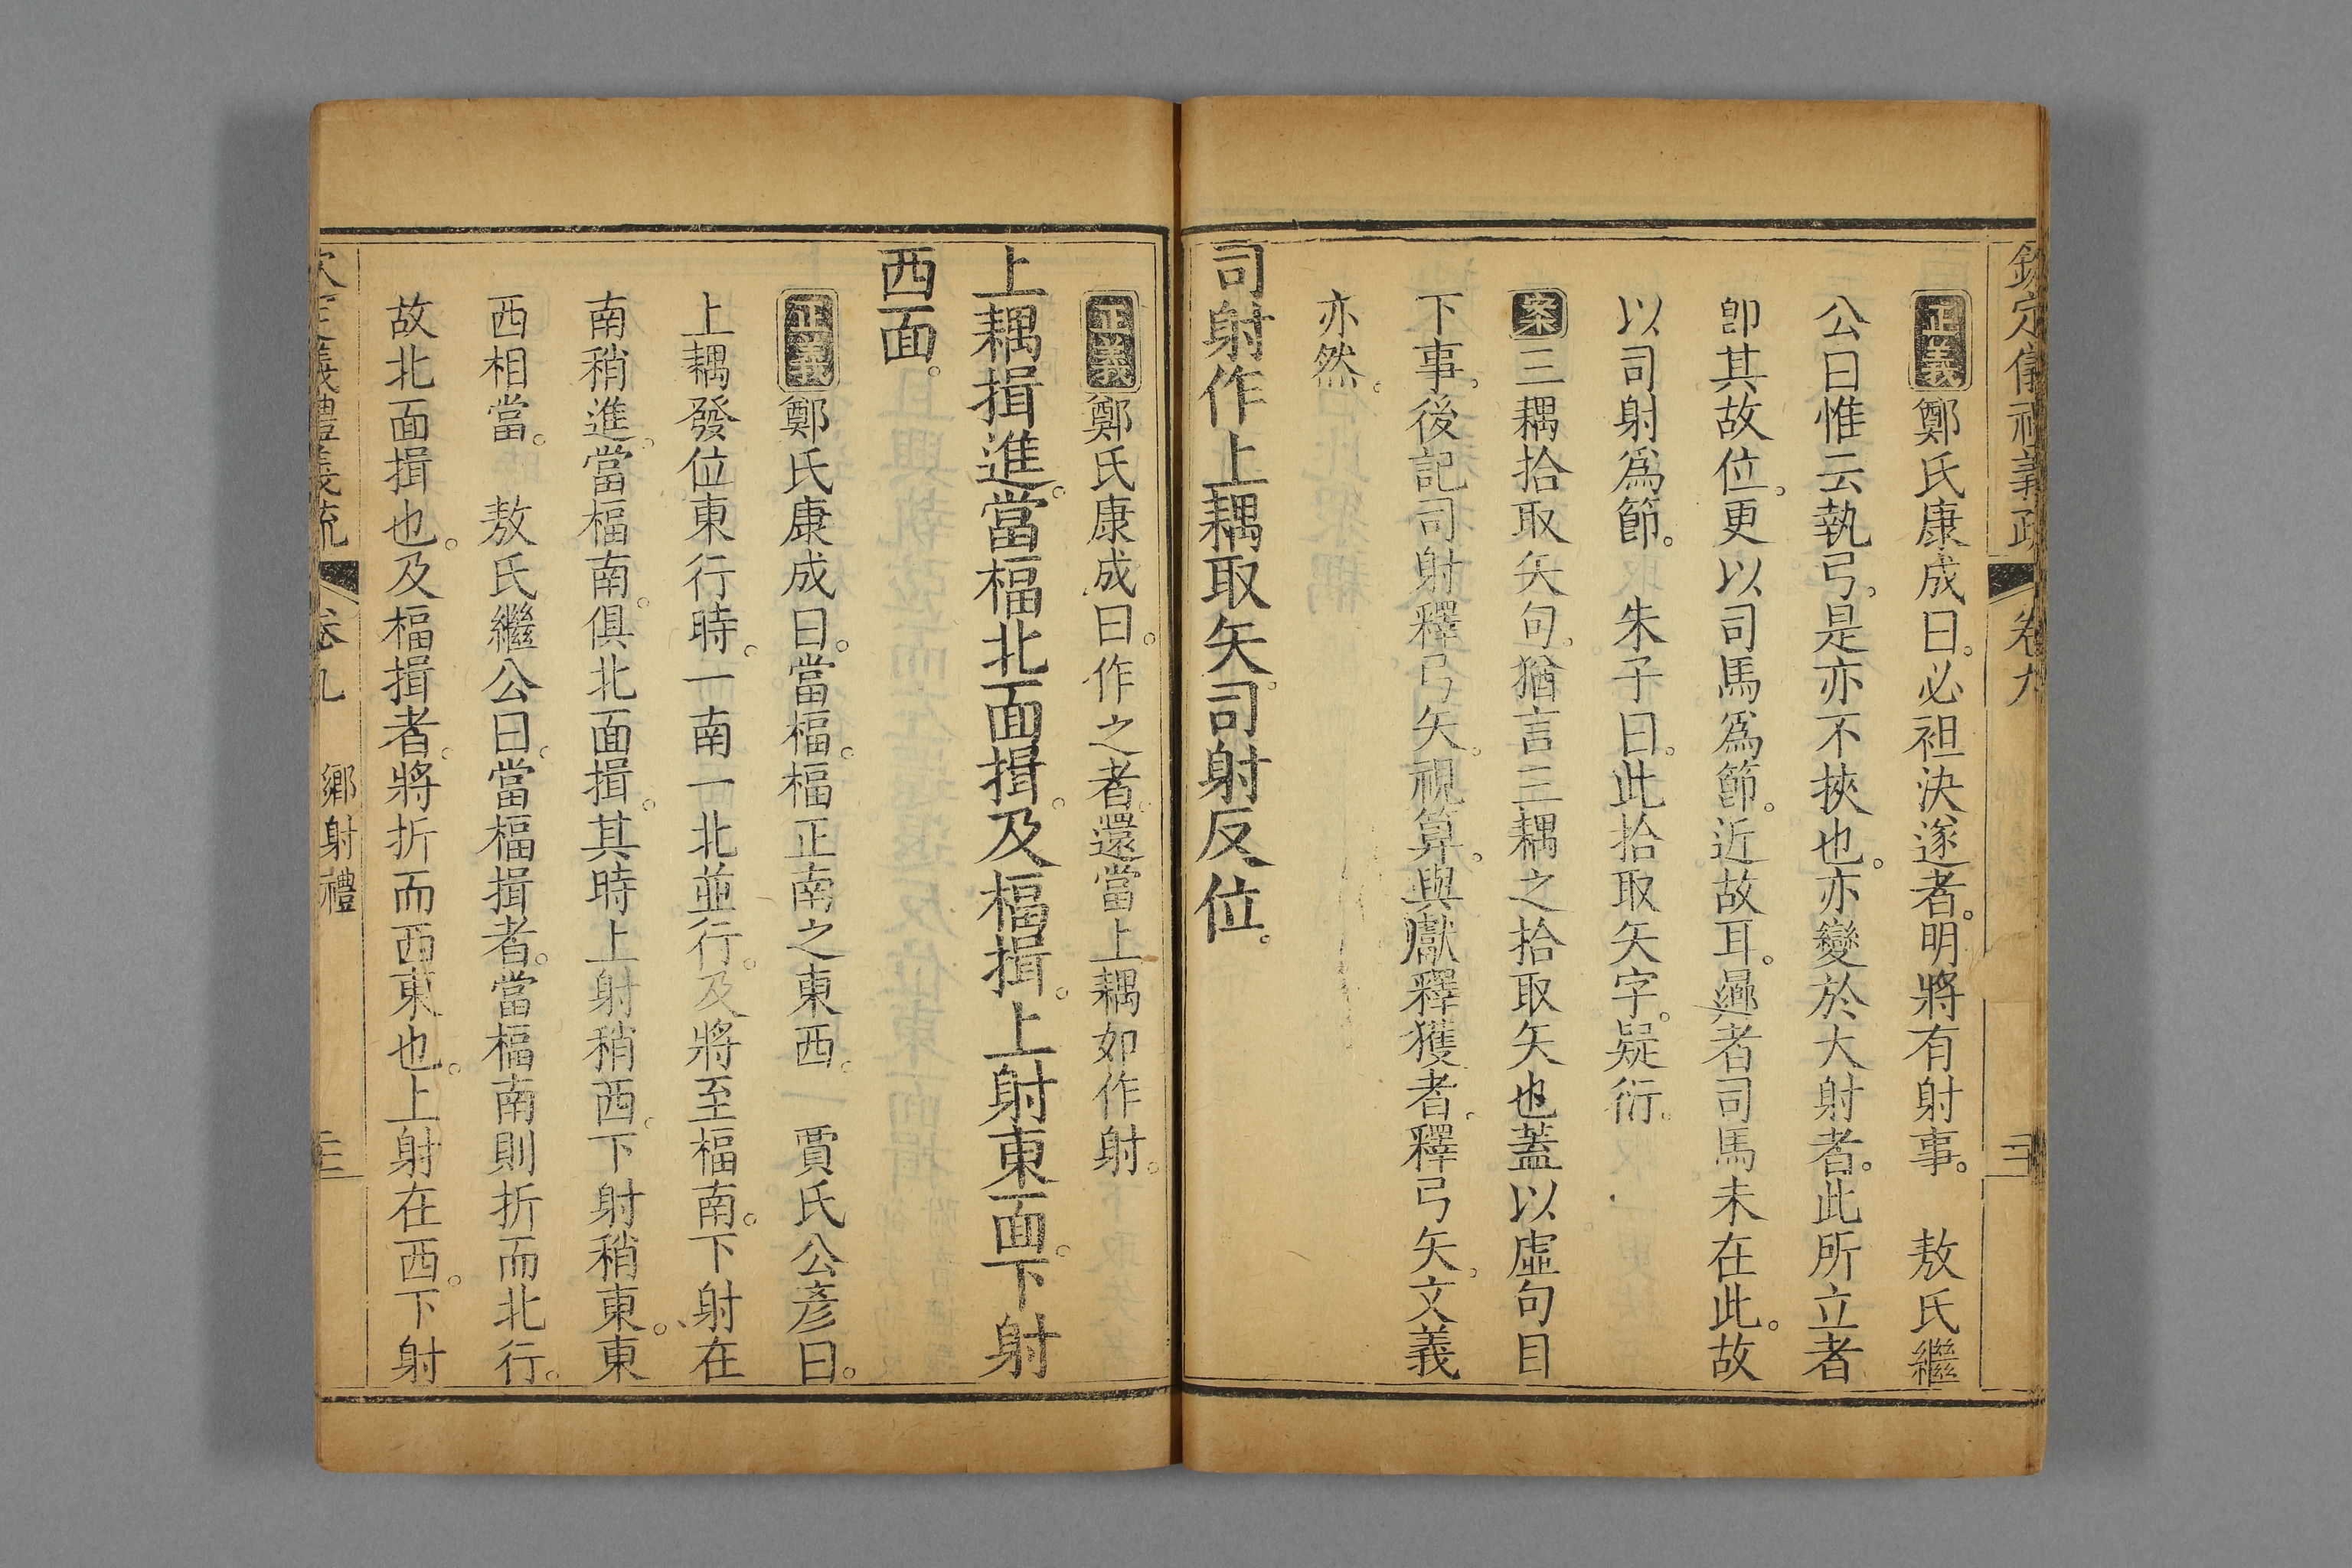 欽定儀禮義疏 卷九
正義鄭氏康成曰。必袒決遂者。明將有射事。 敖氏繼
公曰惟云執弓。是亦不挾也。亦變於大射者。此所立者
卽其故位。更以司馬爲節。近故耳。曏者司馬未在此。故
以司射爲節。 朱子曰。此拾取矢字。疑衍。
案三耦拾取矢句。猶言三耦之拾取矢也蓋以虛句目
下事。後記司射釋弓矢。視算。與獻釋獲者。釋弓矢。文義
亦然。
司射作上耦取矢。司射反位。
正義鄭氏康成曰。作之者。還當上耦如作射。
上耦揖進。當楅北面揖。及楅揖。上射東面。下射
西面。
正義鄭氏康成曰。當楅。楅正南之東西。 賈氏公彥曰。
上耦發位東行時。一南一北並行。及將至楅南。下射在
南稍進。當楅南。俱北面揖。其時上射稍西。下射稍東。東
西相當。 敖氏繼公曰。當楅揖者。當楅南則折而北行。
故北面揖也。及楅揖者。將折而西東也。上射在西。下射
欽定儀禮義疏 卷九 鄉射禮